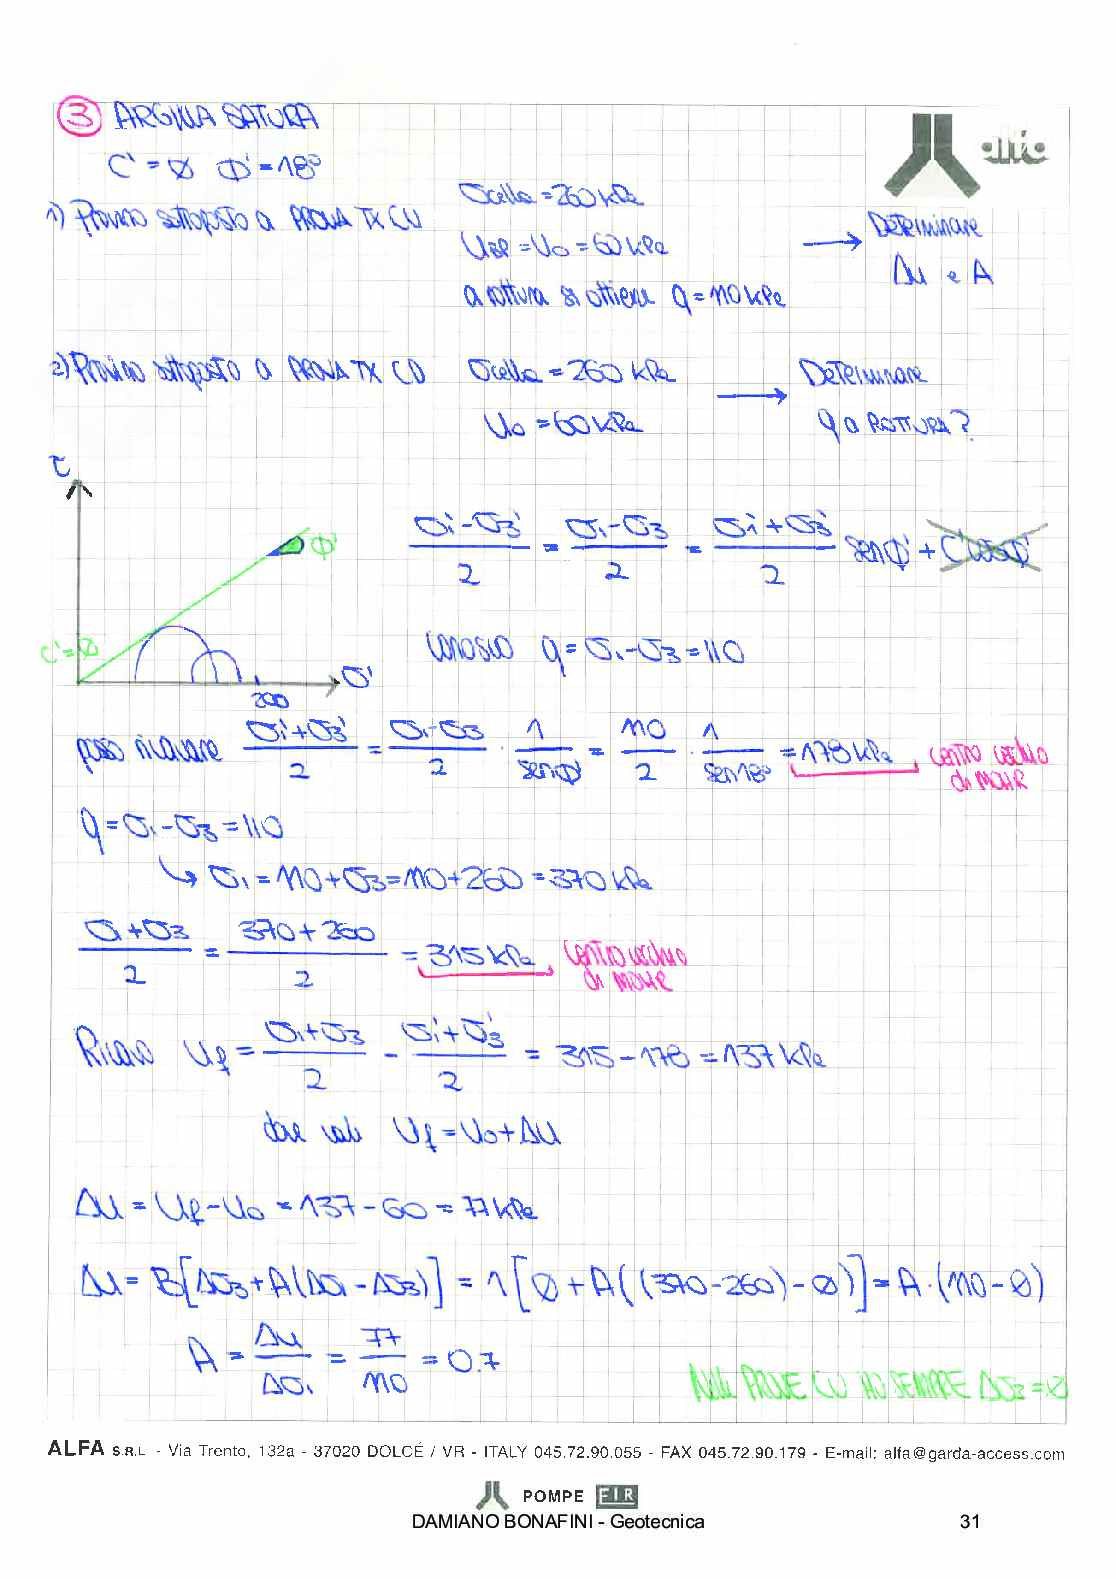 alfa
③ ARGILLA SATURA
C' = Ø Φ' = 18°
1) Provino sottoposto a PROVA TX CU σcella = 260 kPa
UBP = U0 = 60 kPa → Determinare
Δu e A
a rottura si ottiene q = 110 kPa
2) Provino sottoposto a PROVA TX CD σcella = 260 kPa → Determinare
U0 = 60 kPa q a ROTTURA?
τ
Φ'
C' = Ø
σ'
200
(σ1' - σ3')/2 = (σ1 - σ3)/2 = (σ1' + σ3')/2 senΦ' + C'cosΦ'
Conosco q = σ1 - σ3 = 110
posso ricavare (σ1' + σ3')/2 = (σ1 - σ3)/2 · 1/senΦ' = 110/2 · 1/sen18° = 178 kPa, centro cerchio di MOHR
q = σ1 - σ3 = 110
↳ σ1 = 110 + σ3 = 110 + 260 = 370 kPa
(σ1 + σ3)/2 = (370 + 260)/2 = 315 kPa, Centro cerchio di MOHR
Ricavo Uf = (σ1 + σ3)/2 - (σ1' + σ3')/2 = 315 - 178 = 137 kPa
dove vale Uf = U0 + Δu
Δu = Uf - U0 = 137 - 60 = 77 kPa
Δu = B[Δσ3 + A(Δσ1 - Δσ3)] = 1[Ø + A((370 - 260) - Ø)] = A · (110 - Ø)
A = Δu/Δσ1 = 77/110 = 0.7
NELLE PROVE CU HO SEMPRE Δσ3 = Ø
ALFA S.R.L - Via Trento, 132a - 37020 DOLCÉ / VR - ITALY 045.72.90.055 - FAX 045.72.90.179 - E-mail: alfa@garda-access.com
POMPE FIR
DAMIANO BONAFINI - Geotecnica 31